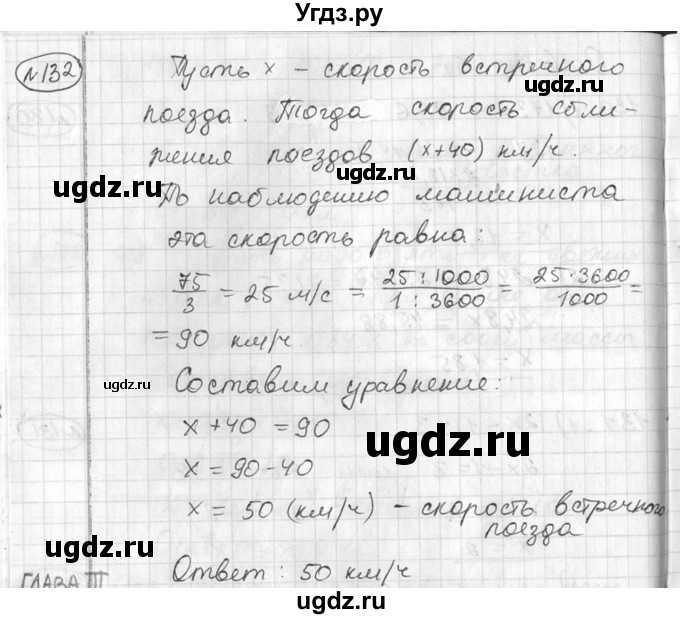 Угдз.ру
№132
Пусть x – скорость встречного
поезда. Тогда скорость сбли-
жения поездов (x+40) км/ч.
По наблюдению машиниста
эта скорость равна:
75/3 = 25 м/с = 25:1000/1:3600 = 25·3600/1000 =
= 90 км/ч.
Составим уравнение:
x+40 = 90
x = 90-40
x = 50 (км/ч) – скорость встречного
поезда
Ответ: 50 км/ч
ГЛАВА III
ugdz.ru
ugdz.ru
ugdz.ru
ugdz.ru
ugdz.ru
ugdz.ru
ugdz.ru
ugdz.ru
ugdz.ru
ugdz.ru